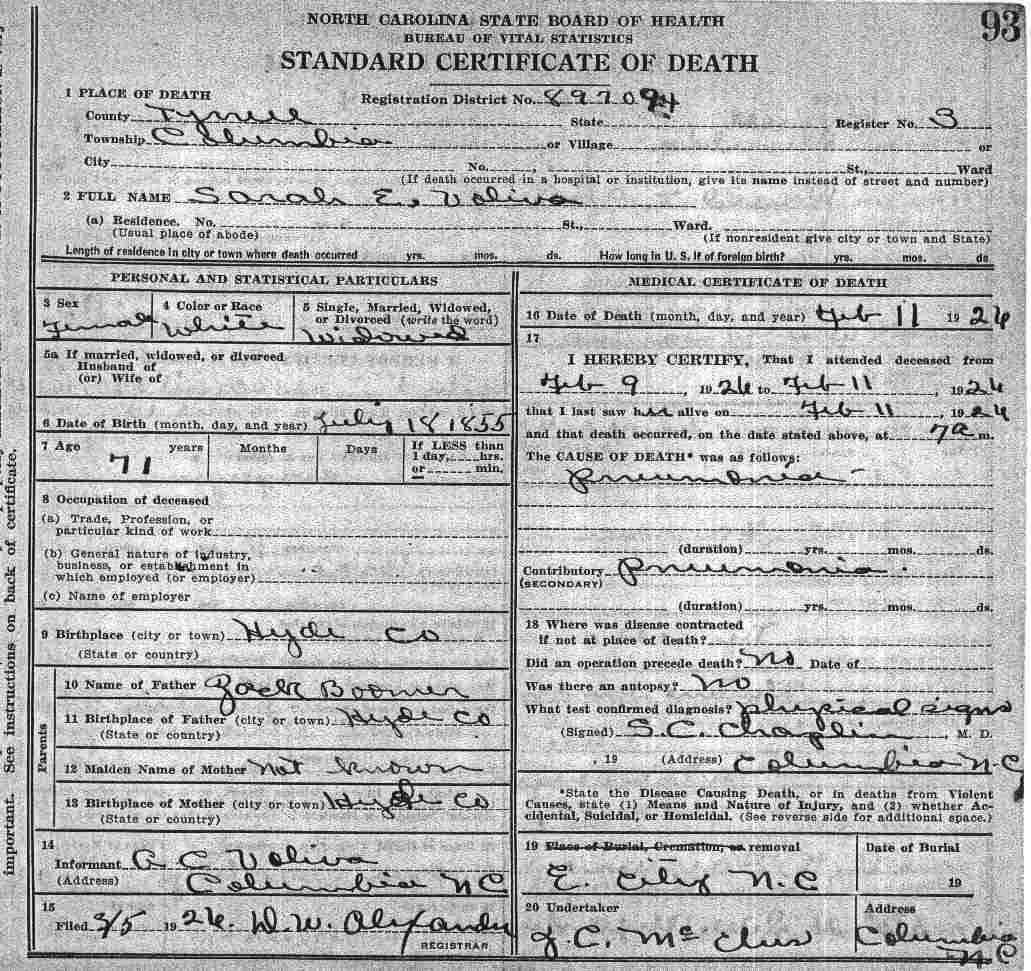 93
NORTH CAROLINA STATE BOARD OF HEALTH
BUREAU OF VITAL STATISTICS
STANDARD CERTIFICATE OF DEATH
1 PLACE OF DEATH
Registration District No. 897094
County Tyrrell State Register No. 3
Township Columbia or Village or
City No. , St., Ward
(If death occurred in a hospital or institution, give its name instead of street and number)
2 FULL NAME Sarah E. Voliva
(a) Residence. No. St., Ward.
(Usual place of abode) (If nonresident give city or town and State)
Length of residence in city or town where death occurred yrs. mos. ds. How long in U. S. if of foreign birth? yrs. mos. ds
PERSONAL AND STATISTICAL PARTICULARS
3 Sex
Female
4 Color or Race
White
5 Single, Married, Widowed,
or Divorced (write the word)
Widowed
5a If married, widowed, or divorced
Husband of
(or) Wife of
6 Date of Birth (month, day, and year) July 18 1855
7 Age 71 years Months Days If LESS than
1 day, hrs.
or min.
8 Occupation of deceased
(a) Trade, Profession, or
particular kind of work
(b) General nature of industry,
business, or establishment in
which employed (or employer)
(c) Name of employer
9 Birthplace (city or town) Hyde Co
(State or country)
Parents
10 Name of Father Zack Boomer
11 Birthplace of Father (city or town) Hyde Co
(State or country)
12 Maiden Name of Mother Not Known
13 Birthplace of Mother (city or town) Hyde Co
(State or country)
14
Informant A C Voliva
(Address) Columbia NC
15
Filed 3/5 1926. D. W. Alexander
REGISTRAR
MEDICAL CERTIFICATE OF DEATH
16 Date of Death (month, day, and year) Feb 11 1926
17
I HEREBY CERTIFY, That I attended deceased from
Feb 9, 1926 to Feb 11, 1926
that I last saw her alive on Feb 11, 1926
and that death occurred, on the date stated above, at 7a m.
The CAUSE OF DEATH* was as follows:
Pneumonia
(duration) yrs. mos. ds.
Contributory Pneumonia.
(SECONDARY)
(duration) yrs. mos. ds.
18 Where was disease contracted
if not at place of death?
Did an operation precede death? No Date of
Was there an autopsy? No
What test confirmed diagnosis? Physical signs
(Signed) S. C. Chaplin, M. D.
, 19 (Address) Columbia N.C
*State the Disease Causing Death, or in deaths from Violent
Causes, state (1) Means and Nature of Injury, and (2) whether Ac-
cidental, Suicidal, or Homicidal. (See reverse side for additional space.)
19 Place of Burial, Cremation, or removal
E. City N.C
Date of Burial
19
20 Undertaker
J. C. Mc
Address
Columbia
N C
important. See instructions on back of certificate.